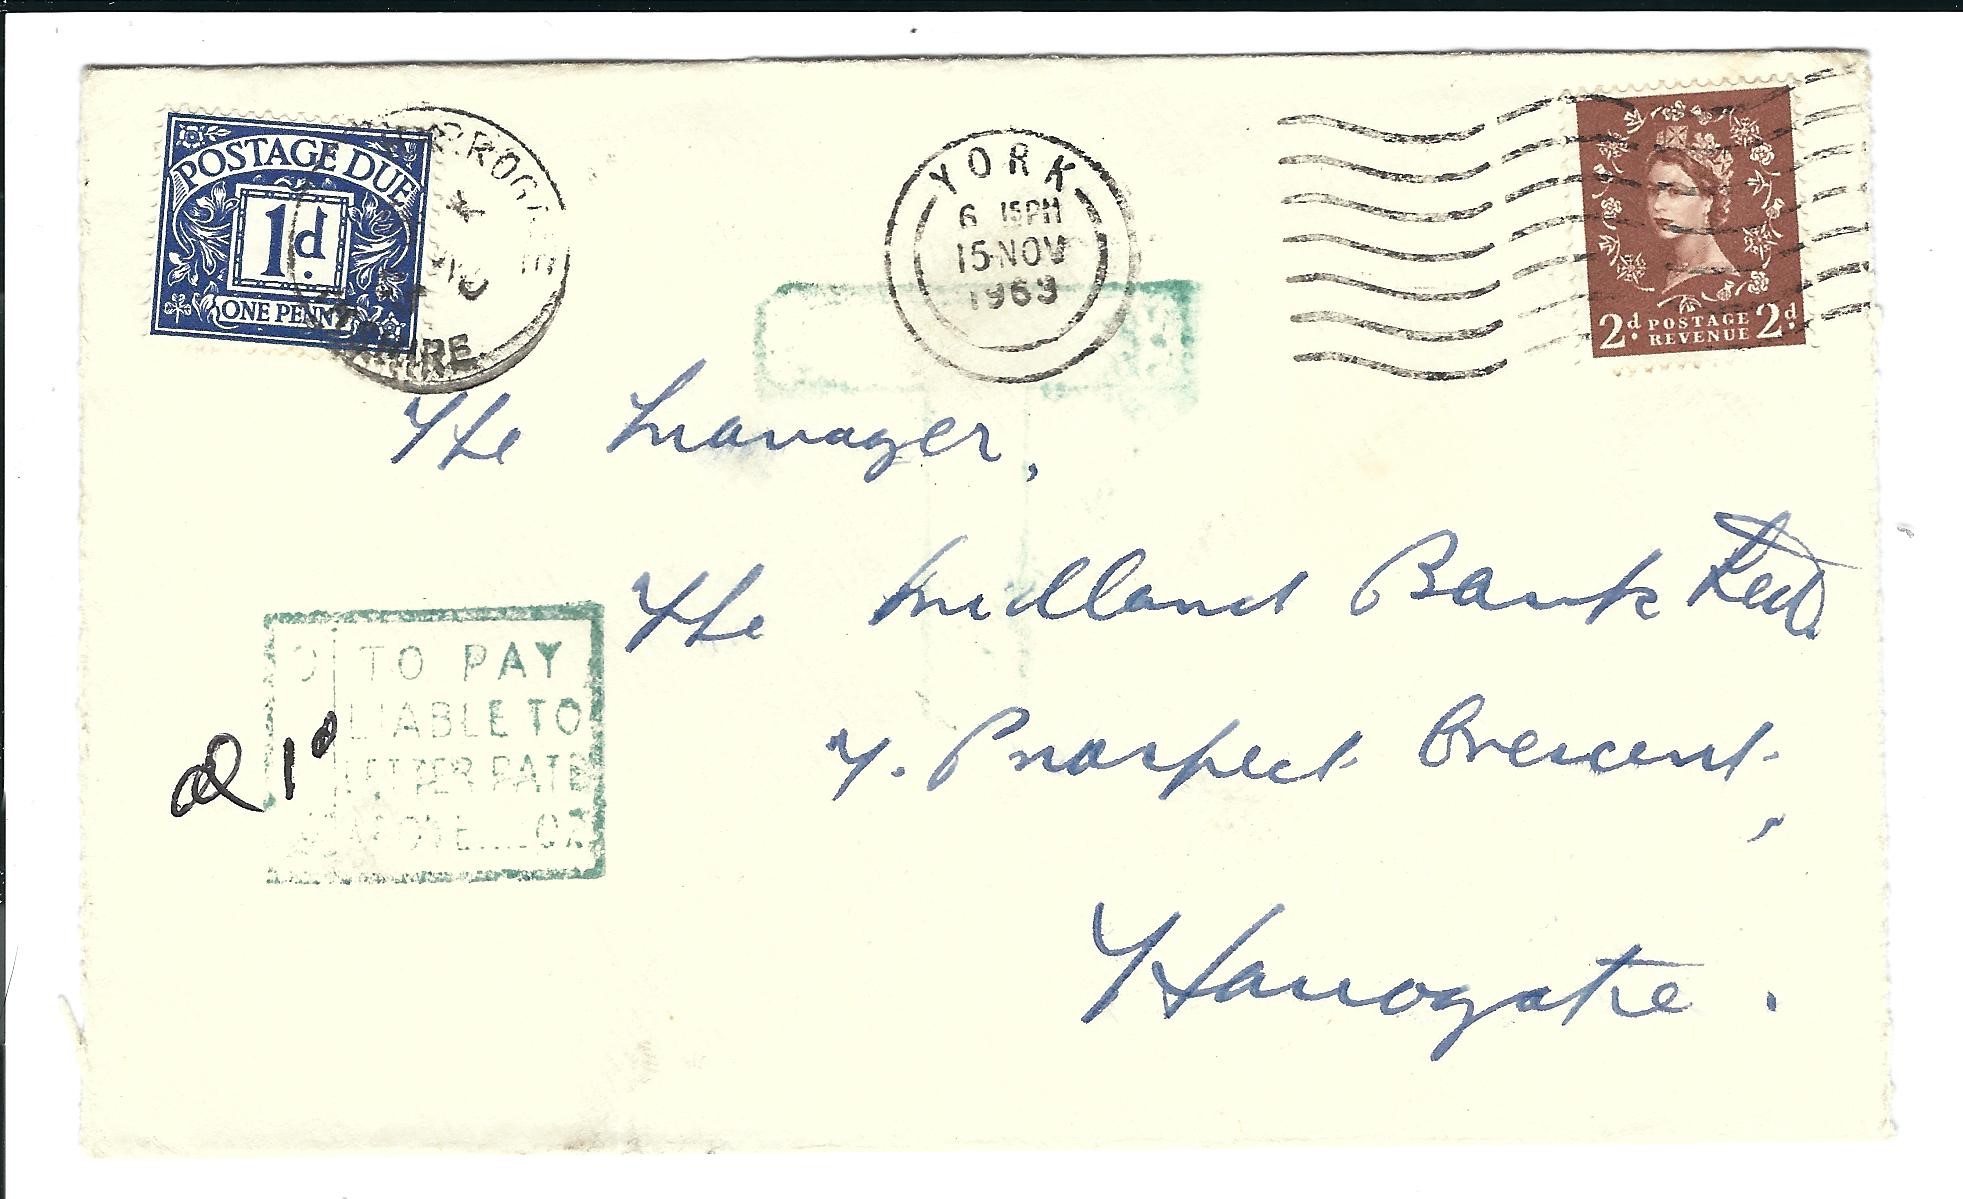 POSTAGE DUE
1d.
ONE PENNY
YORK
6 15PM
15 NOV
1969
2d. POSTAGE REVENUE 2d.
The Manager,
The Midland Bank Ltd.
7. Prospect Crescent,
Harrogate.
TO PAY
LIABLE TO
LETTER RATE
1d